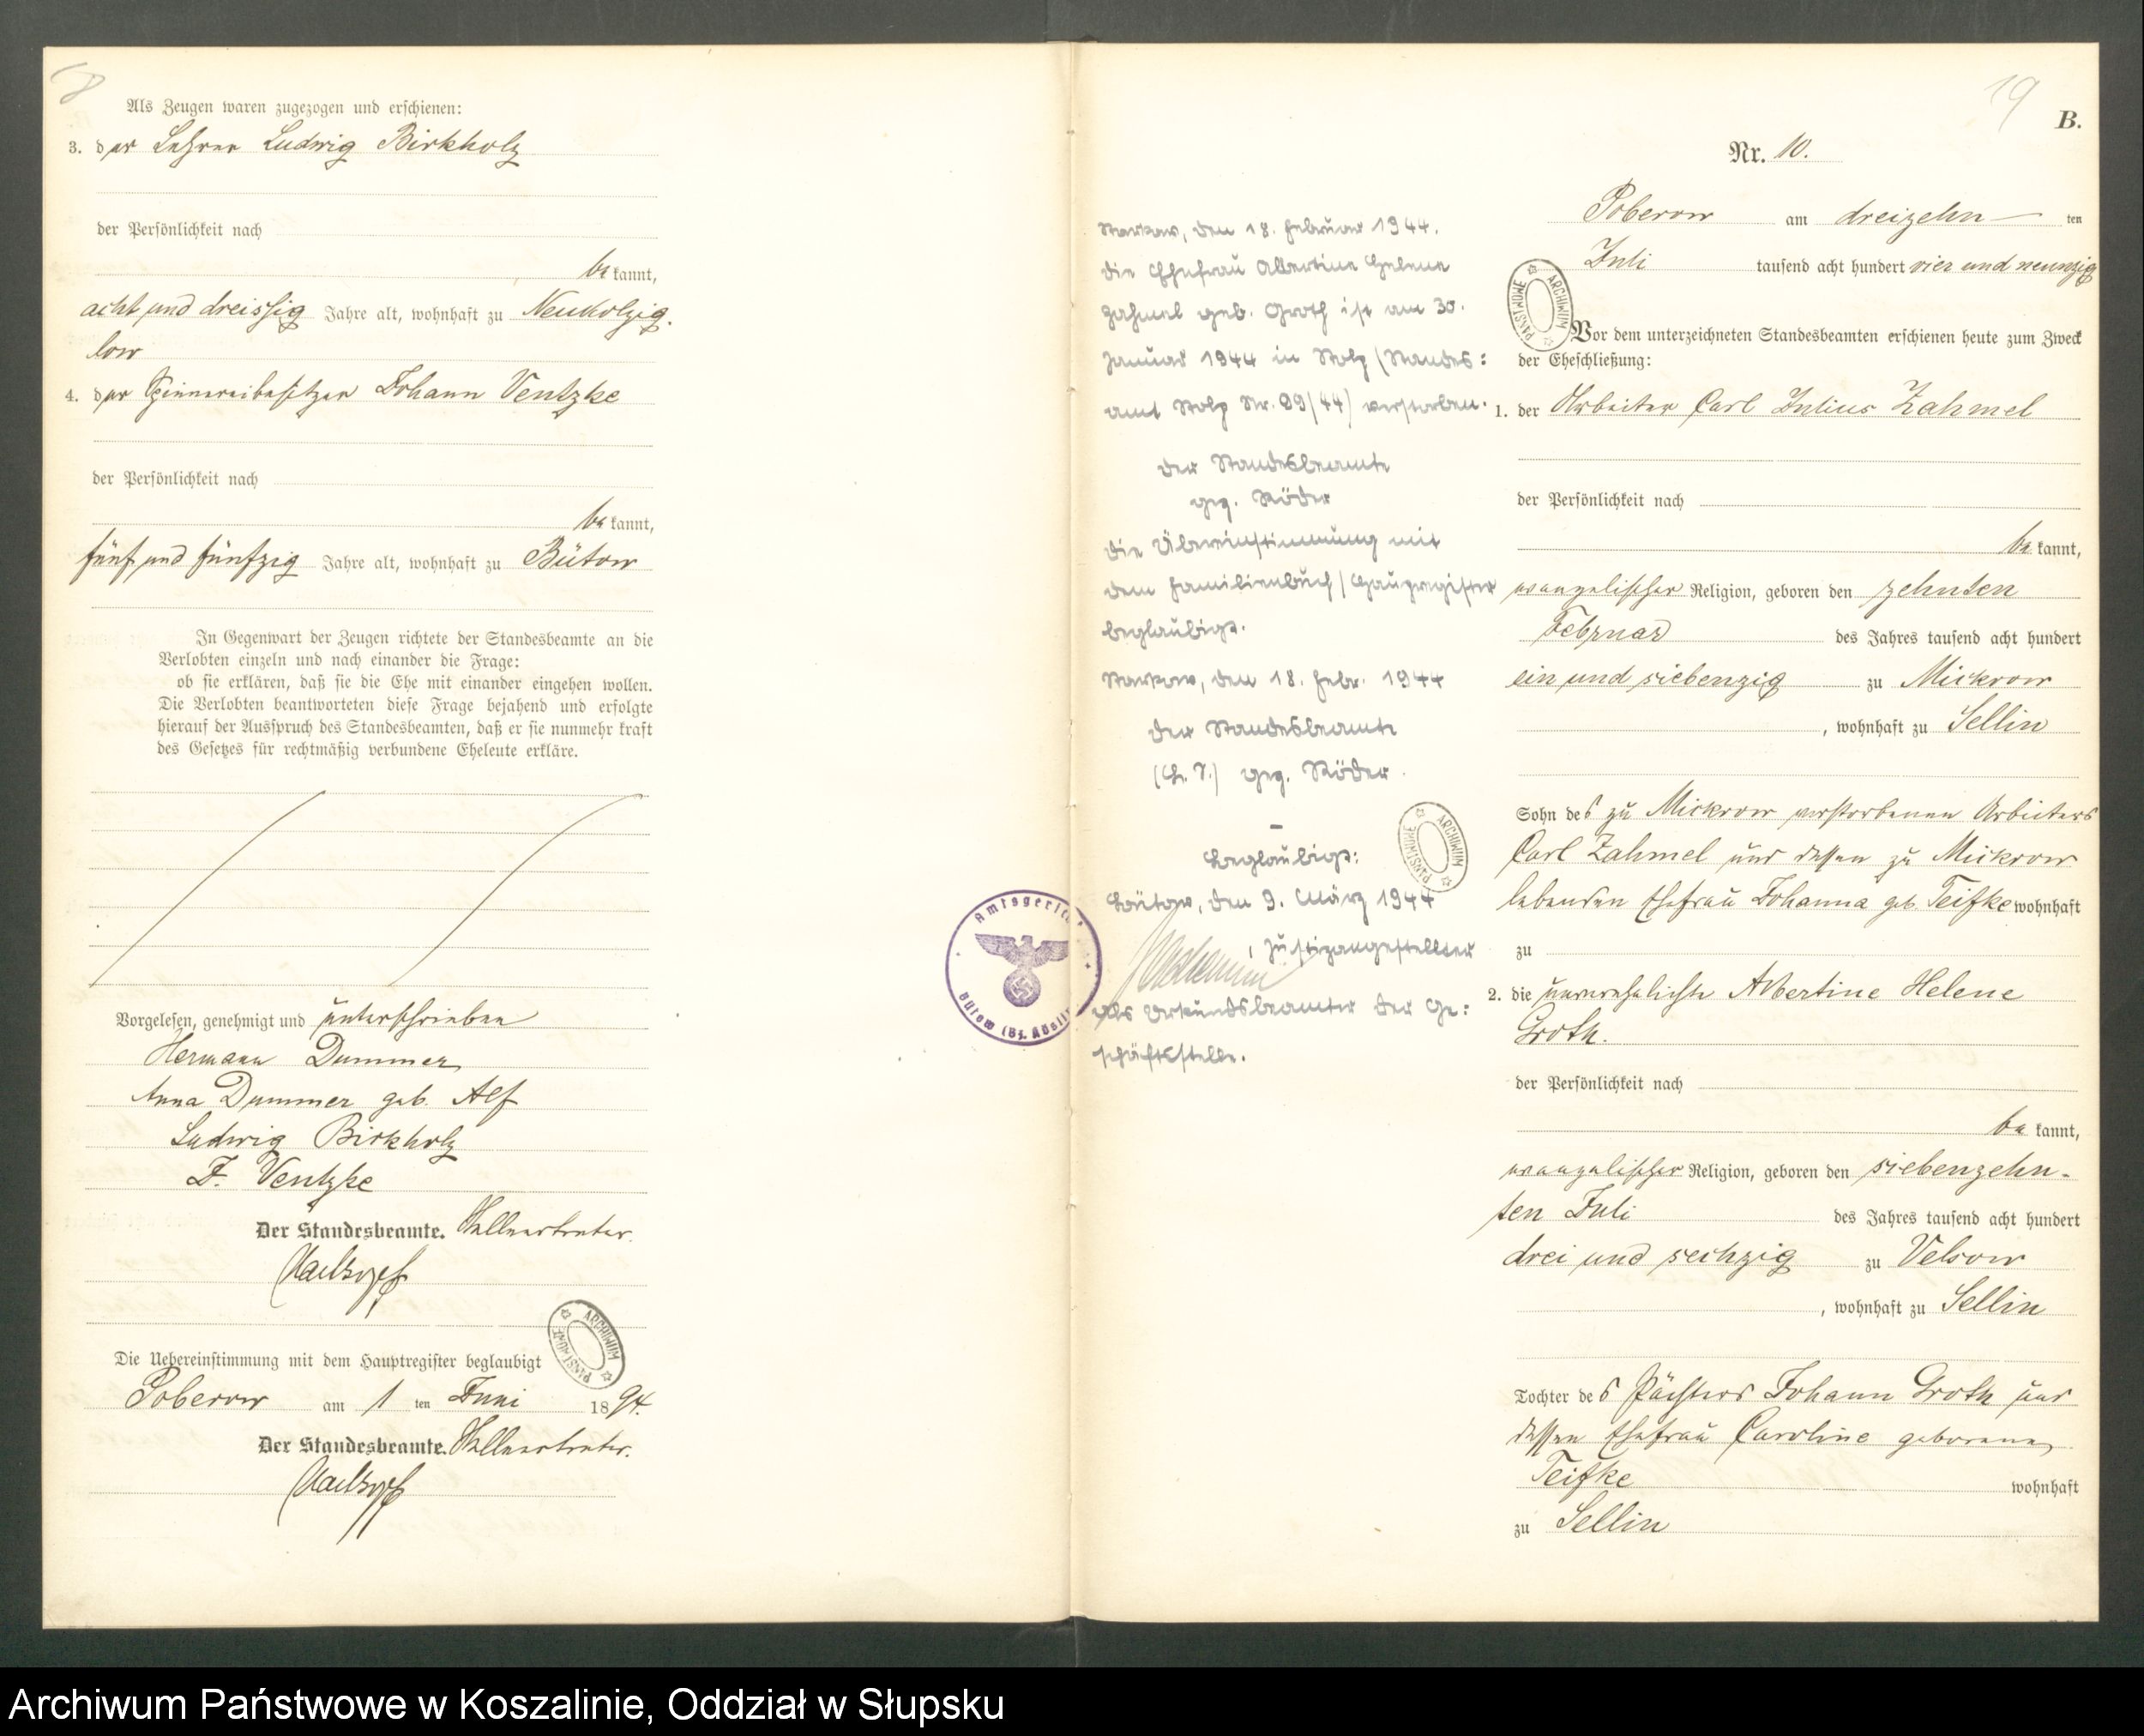 8
Als Zeugen waren zugezogen und erschienen:
3. der Lehrer Ludwig Birkholz
der Persönlichkeit nach
bekannt,
acht und dreissig Jahre alt, wohnhaft zu Neukolzig-
low
4. der Spinnereibesitzer Johann Ventzke
der Persönlichkeit nach
bekannt,
fünf und fünfzig Jahre alt, wohnhaft zu Bütow
In Gegenwart der Zeugen richtete der Standesbeamte an die
Verlobten einzeln und nach einander die Frage:
ob sie erklären, daß sie die Ehe mit einander eingehen wollen.
Die Verlobten beantworteten diese Frage bejahend und erfolgte
hierauf der Ausspruch des Standesbeamten, daß er sie nunmehr kraft
des Gesetzes für rechtmäßig verbundene Eheleute erkläre.
Vorgelesen, genehmigt und unterschrieben
Hermann Dummer
Anna Dummer geb. Alf
Ludwig Birkholz
J. Ventzke
Der Standesbeamte. Stellvertreter.
ARCHIWUM PAŃSTWOWE
Die Uebereinstimmung mit dem Hauptregister beglaubigt
Poberow am 1 ten Juni 1894.
Der Standesbeamte. Stellvertreter.
Amtsgericht
Bütow (Bz. Köslin)
Starkow, den 18. Februar 1944.
Die Ehefrau Albertine Helene
Zahmel geb. Groth ist am 30.
Januar 1944 in Stolp (Standes=
amt Stolp Nr. 99/44) verstorben.
Der Standesbeamte
gez. Röder
Die Übereinstimmung mit
dem Familienbuch/Hauptregister
beglaubigt.
Starkow, den 18. Febr. 1944
Der Standesbeamte
(L. S.) gez. Röder.
–
Beglaubigt:
Bütow, den 9. März 1944
, Justizangestellter
als Urkundsbeamter der Ge=
schäftsstelle.
ARCHIWUM PAŃSTWOWE
19
B.
Nr. 10.
Poberow am dreizehn ten
Juli tausend acht hundert vier und neunzig
ARCHIWUM PAŃSTWOWE
Vor dem unterzeichneten Standesbeamten erschienen heute zum Zweck
der Eheschließung:
1. der Arbeiter Carl Julius Zahmel
der Persönlichkeit nach
bekannt,
evangelischer Religion, geboren den zehnten
Februar des Jahres tausend acht hundert
ein und siebenzig zu Mickrow
, wohnhaft zu Sellin
Sohn des zu Mickrow verstorbenen Arbeiters
Carl Zahmel und dessen zu Mickrow
lebenden Ehefrau Johanna geb. Teifke wohnhaft
zu
2. die unverehelichte Albertine Helene
Groth.
der Persönlichkeit nach
bekannt,
evangelischer Religion, geboren den siebenzehn-
ten Juli des Jahres tausend acht hundert
drei und sechzig zu Velsow
, wohnhaft zu Sellin
Tochter des Pächters Johann Groth und
dessen Ehefrau Caroline geborene
Teifke wohnhaft
zu Sellin
Archiwum Państwowe w Koszalinie, Oddział w Słupsku